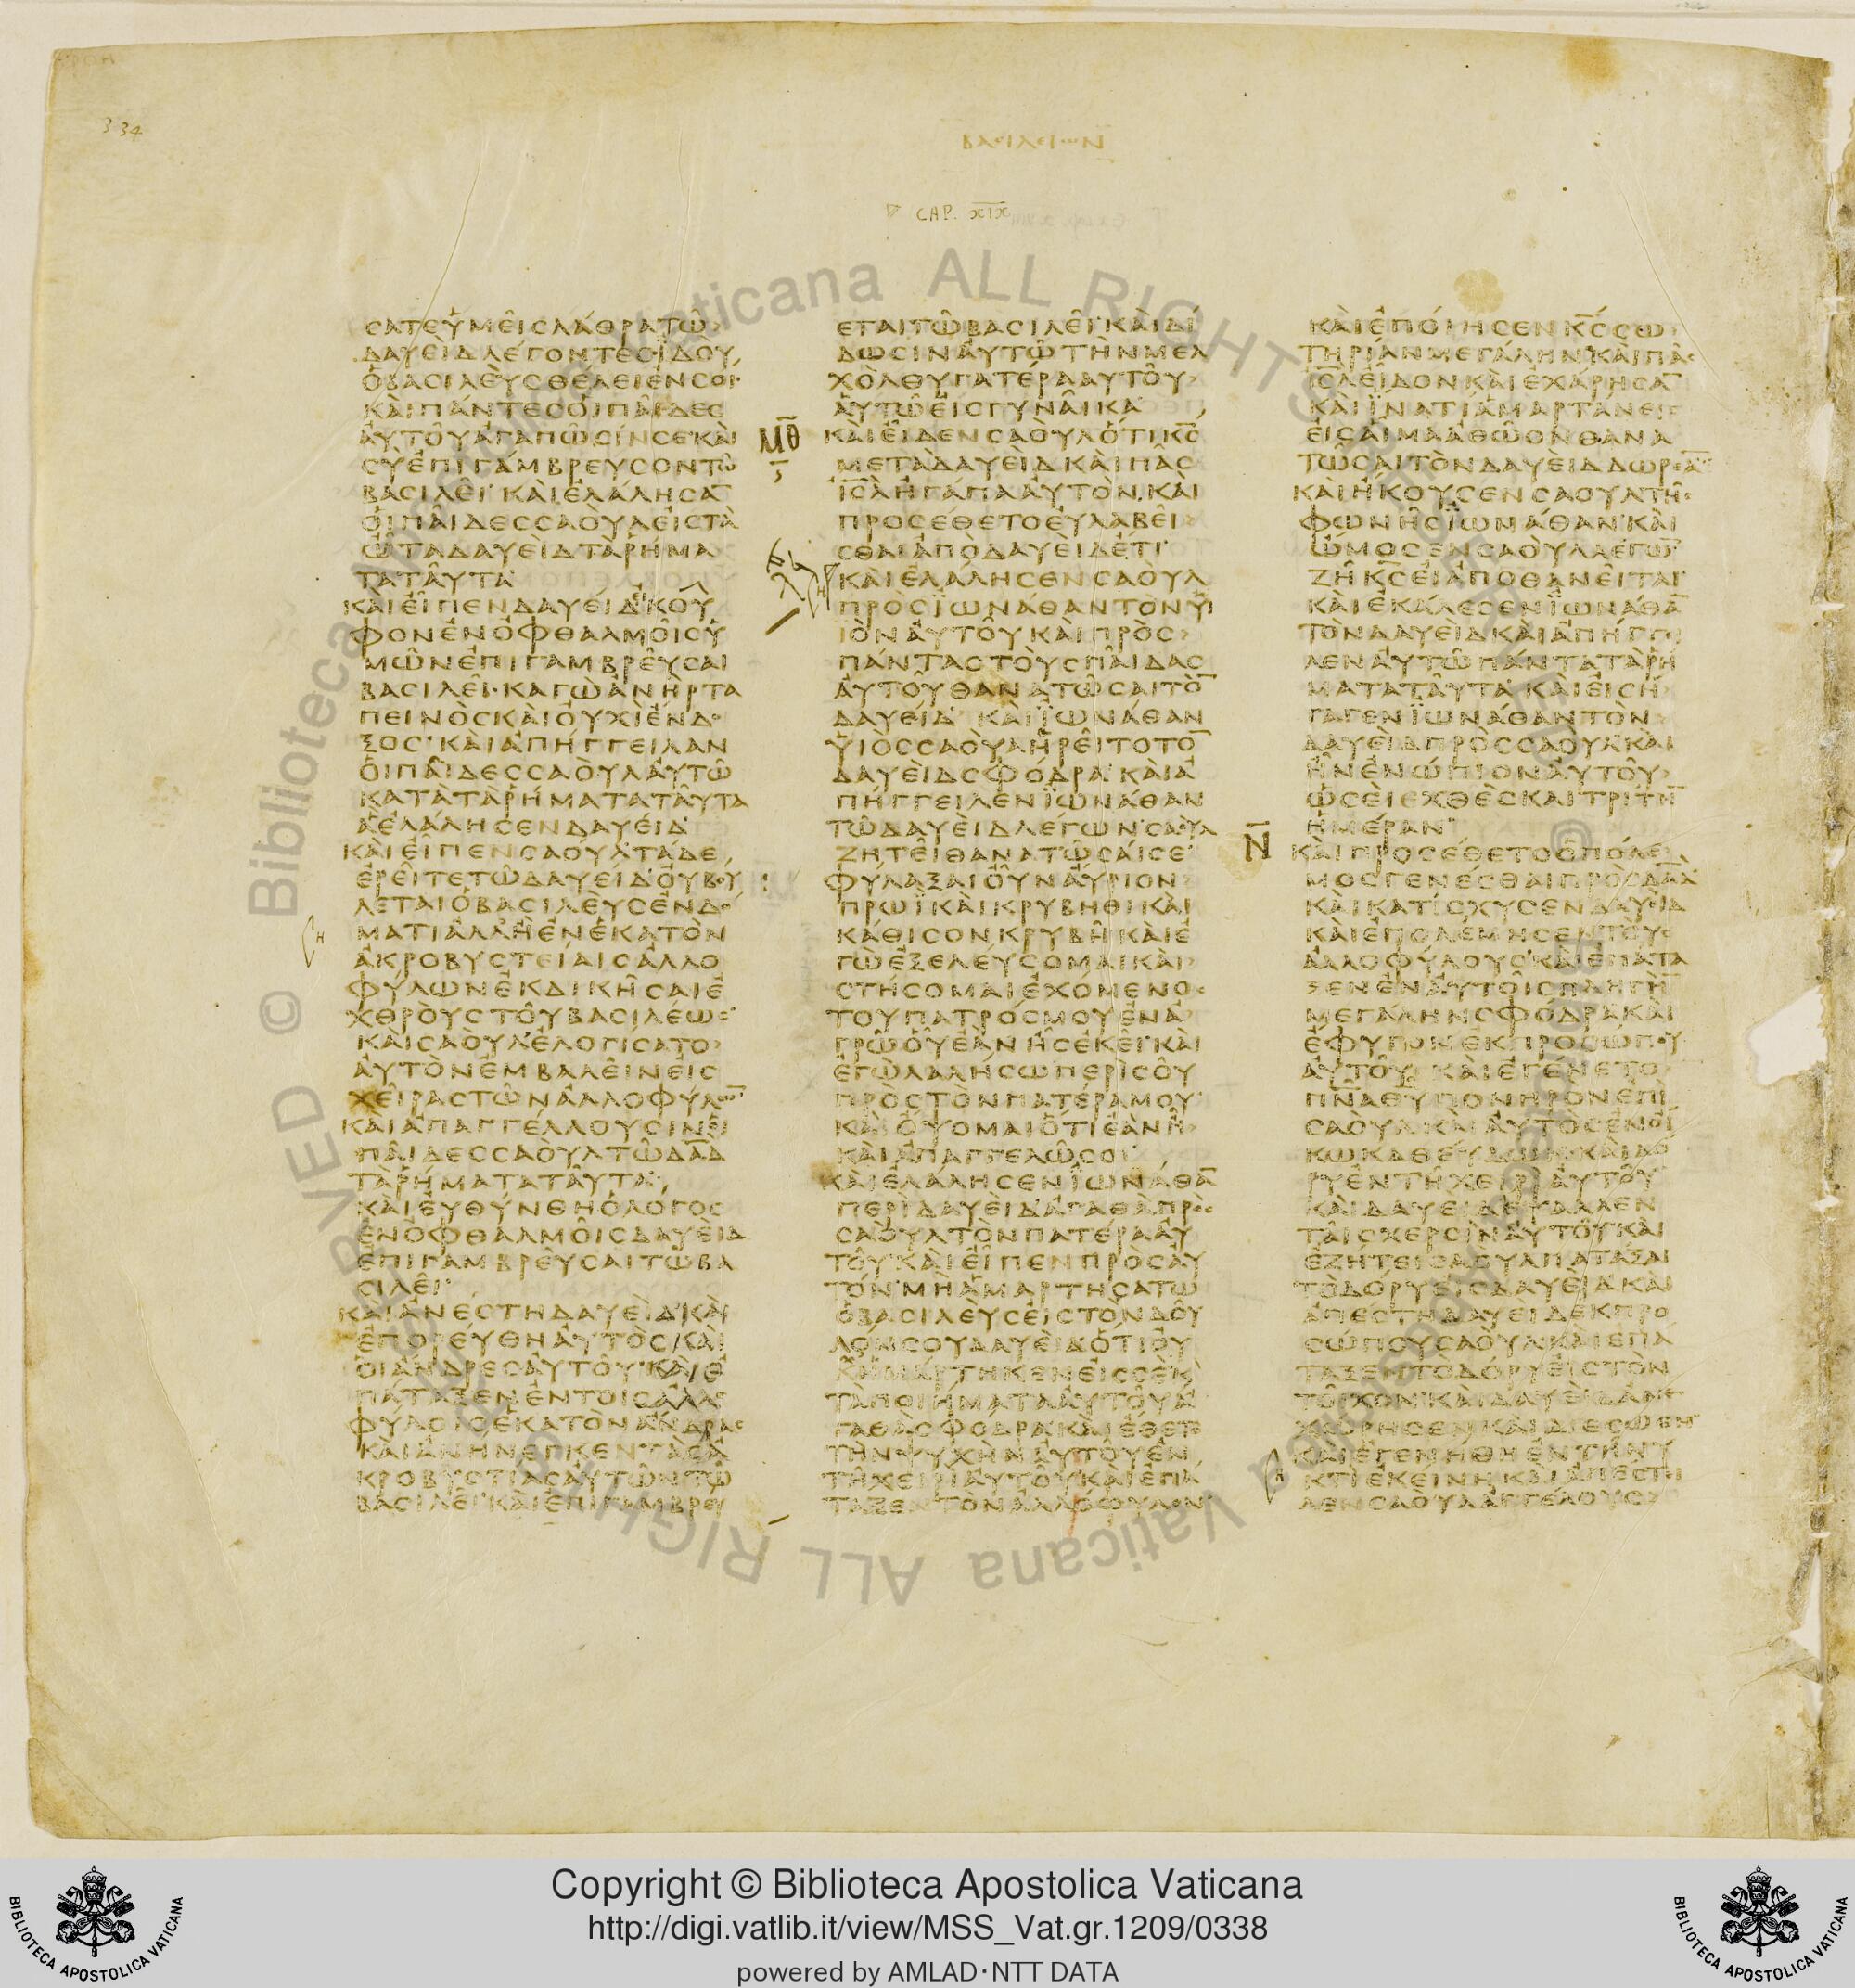 334
ΒΑΣΙΛΕΙΩΝ
CAP. XIX
ϹΑΤΕΥΜΕΙϹΛΑΘΡΑΤΩ
ΔΑΥΕΙΔΛΕΓΟΝΤΕϹΙΔΟΥ
ΟΒΑϹΙΛΕΥϹΘΕΛΕΙΕΝϹΟΙ
ΚΑΙΠΑΝΤΕϹΟΙΠΑΙΔΕϹ
ΑΥΤΟΥΑΓΑΠΩϹΙΝϹΕΚΑΙ
ϹΥΕΠΙΓΑΜΒΡΕΥϹΟΝΤΩ
ΒΑϹΙΛΕΙΚΑΙΕΛΑΛΗϹΑ̅
ΟΙΠΑΙΔΕϹϹΑΟΥΛΕΙϹΤΑ
ΩΤΑΔΑΥΕΙΔΤΑΡΗΜΑ
ΤΑΤΑΥΤΑ
ΚΑΙΕΙΠΕΝΔΑΥΕΙΔΕΙΚΟΥ
ΦΟΝΕΝΟΦΘΑΛΜΟΙϹΥ
ΜΩΝΕΠΙΓΑΜΒΡΕΥϹΑΙ
ΒΑϹΙΛΕΙΚΑΓΩΑΝΗΡΤΑ
ΠΕΙΝΟϹΚΑΙΟΥΧΙΕΝΔΟ
ΞΟϹΚΑΙΑΠΗΓΓΕΙΛΑΝ
ΟΙΠΑΙΔΕϹϹΑΟΥΛΑΥΤΩ
ΚΑΤΑΤΑΡΗΜΑΤΑΤΑΥΤΑ
ΑΕΛΑΛΗϹΕΝΔΑΥΕΙΔ
ΚΑΙΕΙΠΕΝϹΑΟΥΛΤΑΔΕ
ΕΡΕΙΤΕΤΩΔΑΥΕΙΔΟΥΒΟΥ
ΛΕΤΑΙΟΒΑϹΙΛΕΥϹΕΝΔΟ
ΜΑΤΙΑΛΛΗΕΝΕΚΑΤΟΝ
ΑΚΡΟΒΥϹΤΕΙΑΙϹΑΛΛΟ
ΦΥΛΩΝΕΚΔΙΚΗϹΑΙΕ
ΧΘΡΟΥϹΤΟΥΒΑϹΙΛΕΩϹ
ΚΑΙϹΑΟΥΛΕΛΟΓΙϹΑΤΟ
ΑΥΤΟΝΕΜΒΑΛΕΙΝΕΙϹ
ΧΕΙΡΑϹΤΩΝΑΛΛΟΦΥΛΩ̅
ΚΑΙΑΠΑΓΓΕΛΛΟΥϹΙΝΟΙ
ΠΑΙΔΕϹϹΑΟΥΛΤΩΔΑ̅Δ
ΤΑΡΗΜΑΤΑΤΑΥΤΑ
ΚΑΙΕΥΘΥΝΘΗΟΛΟΓΟϹ
ΕΝΟΦΘΑΛΜΟΙϹΔΑΥΕΙΔ
ΕΠΙΓΑΜΒΡΕΥϹΑΙΤΩΒΑ
ϹΙΛΕΙ
ΚΑΙΑΝΕϹΤΗΔΑΥΕΙΔΚΑΙ
ΕΠΟΡΕΥΘΗΑΥΤΟϹΚΑΙ
ΟΙΑΝΔΡΕϹΑΥΤΟΥΚΑΙΕ
ΠΑΤΑΞΕΝΕΝΤΟΙϹΑΛΛΟ
ΦΥΛΟΙϹΕΚΑΤΟΝΑΝΔΡΑϹ
ΚΑΙΑΝΗΝΕΓΚΕΝΤΑϹΑ
ΚΡΟΒΥϹΤΙΑϹΑΥΤΩΝΤΩ
ΒΑϹΙΛΕΙΚΑΙΕΠΙΓΑΜΒΡΕΥ
ΕΤΑΙΤΩΒΑϹΙΛΕΙΚΑΙΔΙ
ΔΩϹΙΝΑΥΤΩΤΗΝΜΕΛ
ΧΟΛΘΥΓΑΤΕΡΑΑΥΤΟΥ
ΑΥΤΩΕΙϹΓΥΝΑΙΚΑ
Μ̅Θ̅ ΚΑΙΕΙΔΕΝϹΑΟΥΛΟΤΙΚ̅Ϲ̅
ΜΕΤΑΔΑΥΕΙΔΚΑΙΠΑϹ
Ι̅Ϲ̅Λ̅ΗΓΑΠΑΑΥΤΟΝΚΑΙ
ΠΡΟϹΕΘΕΤΟΕΥΛΑΒΕΙ
ϹΘΑΙΑΠΟΔΑΥΕΙΔΕΤΙ
ΚΑΙΕΛΑΛΗϹΕΝϹΑΟΥΛ
ΠΡΟϹΙΩΝΑΘΑΝΤΟΝΥ
ΙΟΝΑΥΤΟΥΚΑΙΠΡΟϹ
ΠΑΝΤΑϹΤΟΥϹΠΑΙΔΑϹ
ΑΥΤΟΥΘΑΝΑΤΩϹΑΙΤΟ̅
ΔΑΥΕΙΔΚΑΙΙΩΝΑΘΑΝ
ΥΙΟϹϹΑΟΥΛΗΡΕΙΤΟΤΟ̅
ΔΑΥΕΙΔϹΦΟΔΡΑΚΑΙΑ
ΠΗΓΓΕΙΛΕΝΙΩΝΑΘΑΝ
ΤΩΔΑΥΕΙΔΛΕΓΩΝϹΑΟΥΛ
ΖΗΤΕΙΘΑΝΑΤΩϹΑΙϹΕ
ΦΥΛΑΞΑΙΟΥΝΑΥΡΙΟΝ
ΠΡΩΙΚΑΙΚΡΥΒΗΘΙΚΑΙ
ΚΑΘΙϹΟΝΚΡΥΒΗΚΑΙΕ
ΓΩΕΞΕΛΕΥϹΟΜΑΙΚΑΙ
ϹΤΗϹΟΜΑΙΕΧΟΜΕΝΟϹ
ΤΟΥΠΑΤΡΟϹΜΟΥΕΝΑ
ΓΡΩΟΥΕΑΝΗϹΕΚΕΙΚΑΙ
ΕΓΩΛΑΛΗϹΩΠΕΡΙϹΟΥ
ΠΡΟϹΤΟΝΠΑΤΕΡΑΜΟΥ
ΚΑΙΟΨΟΜΑΙΟΤΙΕΑΝΗ
ΚΑΙΑΠΑΓΓΕΛΩϹΟΙ
ΚΑΙΕΛΑΛΗϹΕΝΙΩΝΑΘΑ̅
ΠΕΡΙΔΑΥΕΙΔΑΓΑΘΑΠΡΟϹ
ϹΑΟΥΛΤΟΝΠΑΤΕΡΑΑΥ
ΤΟΥΚΑΙΕΙΠΕΝΠΡΟϹΑΥ
ΤΟΝΜΗΑΜΑΡΤΗϹΑΤΩ
ΟΒΑϹΙΛΕΥϹΕΙϹΤΟΝΔΟΥ
ΛΟΝϹΟΥΔΑΥΕΙΔΟΤΙΟΥ
ΧΗΜΑΡΤΗΚΕΝΕΙϹϹΕΚΑΙ
ΤΑΠΟΙΗΜΑΤΑΑΥΤΟΥΑ
ΓΑΘΑϹΦΟΔΡΑΚΑΙΕΘΕΤΟ
ΤΗΝΨΥΧΗΝΑΥΤΟΥΕΝ
ΤΗΧΕΙΡΙΑΥΤΟΥΚΑΙΕΠΑ
ΤΑΞΕΝΤΟΝΑΛΛΟΦΥΛΟΝ
ΚΑΙΕΠΟΙΗϹΕΝΚ̅Ϲ̅ϹΩ
ΤΗΡΙΑΝΜΕΓΑΛΗΝΚΑΙΠΑϹ
Ι̅Ϲ̅Λ̅ΕΙΔΟΝΚΑΙΕΧΑΡΗϹΑ̅
ΚΑΙΙΝΑΤΙΑΜΑΡΤΑΝΕΙϹ
ΕΙϹΑΙΜΑΑΘΩΟΝΘΑΝΑ
ΤΩϹΑΙΤΟΝΔΑΥΕΙΔΔΩΡΕΑ̅
ΚΑΙΗΚΟΥϹΕΝϹΑΟΥΛΤΗϹ
ΦΩΝΗϹΙΩΝΑΘΑΝΚΑΙ
ΩΜΟϹΕΝϹΑΟΥΛΛΕΓΩ̅
ΖΗΚ̅Ϲ̅ΕΙΑΠΟΘΑΝΕΙΤΑΙ
ΚΑΙΕΚΑΛΕϹΕΝΙΩΝΑΘΑ̅
ΤΟΝΔΑΥΕΙΔΚΑΙΑΠΗΓΓΕΙ
ΛΕΝΑΥΤΩΠΑΝΤΑΤΑΡΗ
ΜΑΤΑΤΑΥΤΑΚΑΙΕΙϹΗ
ΓΑΓΕΝΙΩΝΑΘΑΝΤΟΝ
ΔΑΥΕΙΔΠΡΟϹϹΑΟΥΛΚΑΙ
ΗΝΕΝΩΠΙΟΝΑΥΤΟΥ
ΩϹΕΙΕΧΘΕϹΚΑΙΤΡΙΤΗ̅
ΗΜΕΡΑΝ
Ν̅ ΚΑΙΠΡΟϹΕΘΕΤΟΟΠΟΛΕ
ΜΟϹΓΕΝΕϹΘΑΙΠΡΟϹΔΑ̅Δ
ΚΑΙΚΑΤΙϹΧΥϹΕΝΔΑΥΕΙΔ
ΚΑΙΕΠΟΛΕΜΗϹΕΝΤΟΥϹ
ΑΛΛΟΦΥΛΟΥϹΚΑΙΕΠΑΤΑ
ΞΕΝΕΝΑΥΤΟΙϹΠΛΗΓΗ̅
ΜΕΓΑΛΗΝϹΦΟΔΡΑΚΑΙ
ΕΦΥΓΟΝΕΚΠΡΟϹΩΠΟΥ
ΑΥΤΟΥΚΑΙΕΓΕΝΕΤΟ
Π̅Ν̅Α̅Θ̅Υ̅ΠΟΝΗΡΟΝΕΠΙ
ϹΑΟΥΛΚΑΙΑΥΤΟϹΕΝΟΙ
ΚΩΚΑΘΕΥΔΩΝΚΑΙΔΟ
ΡΥΕΝΤΗΧΕΙΡΙΑΥΤΟΥ
ΚΑΙΔΑΥΕΙΔΕΨΑΛΛΕΝ
ΤΑΙϹΧΕΡϹΙΝΑΥΤΟΥΚΑΙ
ΕΖΗΤΕΙϹΑΟΥΛΠΑΤΑΞΑΙ
ΤΟΔΟΡΥΕΙϹΔΑΥΕΙΔΚΑΙ
ΑΠΕϹΤΗΔΑΥΕΙΔΕΚΠΡΟ
ϹΩΠΟΥϹΑΟΥΛΚΑΙΕΠΑ
ΤΑΞΕΝΤΟΔΟΡΥΕΙϹΤΟΝ
ΤΟΙΧΟΝΚΑΙΔΑΥΕΙΔΑΝΕ
ΧΩΡΗϹΕΝΚΑΙΔΙΕϹΩΘΗ
ΚΑΙΕΓΕΝΗΘΗΕΝΤΗΝΥ
ΚΤΙΕΚΕΙΝΗΚΑΙΑΠΕϹΤΙ
ΛΕΝϹΑΟΥΛΑΓΓΕΛΟΥϹ
© Biblioteca Apostolica Vaticana ALL RIGHTS RESERVED
© Biblioteca Apostolica Vaticana ALL RIGHTS RESERVED
Copyright © Biblioteca Apostolica Vaticana
http://digi.vatlib.it/view/MSS_Vat.gr.1209/0338
powered by AMLAD·NTT DATA
BIBLIOTECA APOSTOLICA VATICANA
BIBLIOTECA APOSTOLICA VATICANA